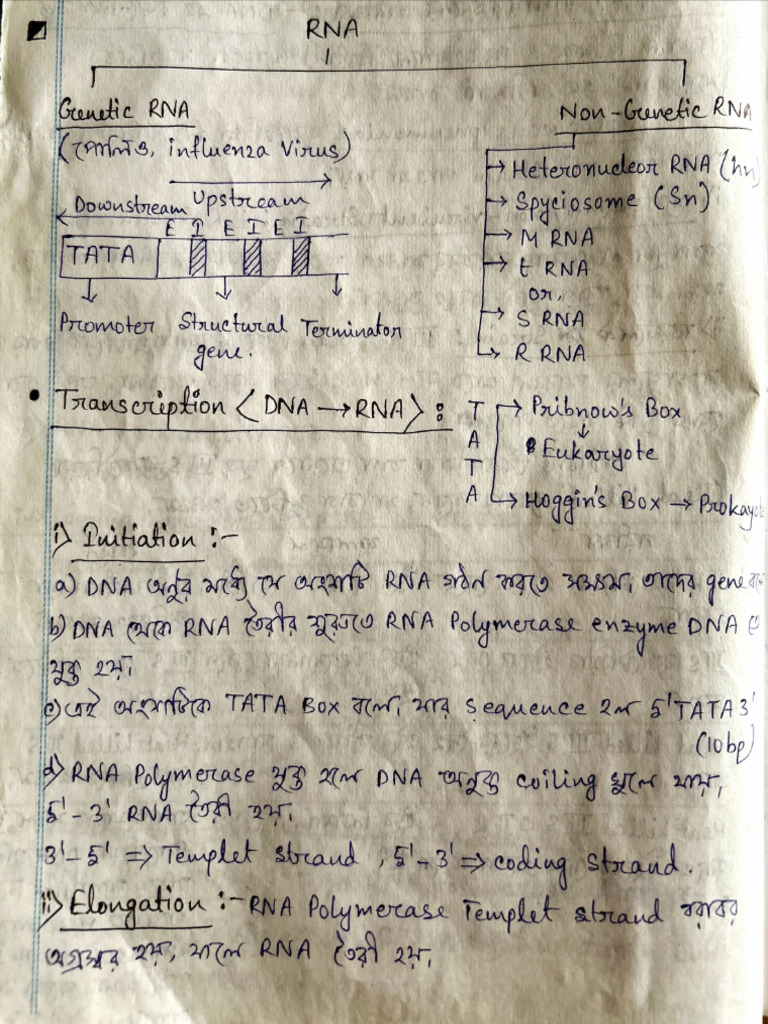 RNA
Genetic RNA
(পোলিও, influenza Virus)
Upstream
Downstream
E I E I E I
TATA
Promoter Structural gene. Terminator
Non-Genetic RNA
Heteronucleor RNA (hn)
Spyciosome (Sn)
M RNA
t RNA
or,
S RNA
R RNA
• Transcription <DNA → RNA> :
TATA
Pribnow's Box
↓
Eukaryote
Hoggin's Box → Prokayote
i) Initiation :-
a) DNA অনুর মধ্যে যে অংশটি RNA গঠন করতে সক্ষম, তাদের gene বলে
b) DNA থেকে RNA তৈরীর শুরুতে RNA Polymerase enzyme DNA তে
যুক্ত হয়।
c) এই অংশটিকে TATA Box বলে, যার sequence হল 5'TATA3'
(10bp)
d) RNA Polymerase যুক্ত হলে DNA অনুর coiling খুলে যায়,
5'-3' RNA তৈরী হয়।
3'-5' => Templet strand, 5'-3' => coding strand.
ii) Elongation :- RNA Polymerase Templet strand বরাবর
অগ্রসর হয়, ফলে RNA তৈরী হয়।